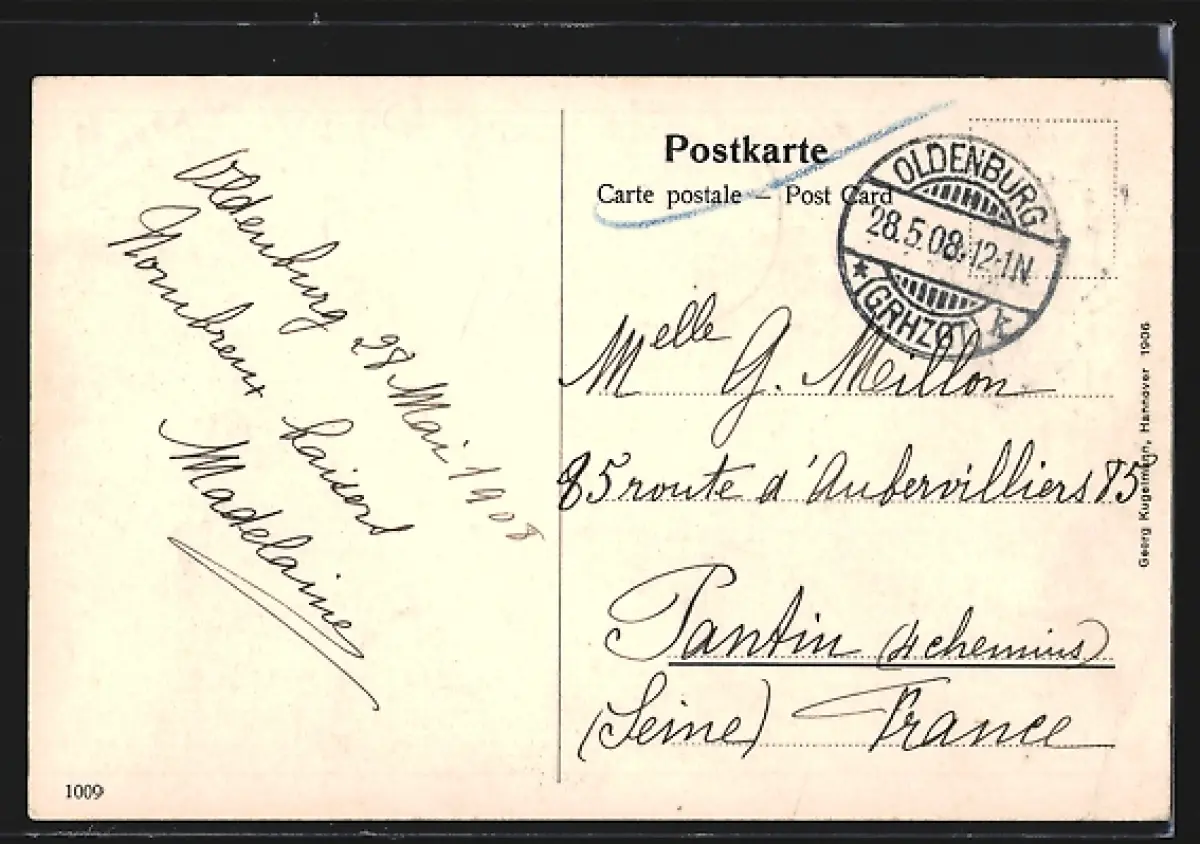 Oldenburg 28 Mai 1908
Nombreux baisers
Madelaine
1009
Postkarte
Carte postale — Post Card
OLDENBURG
28.5.08.12-1N.
* (GRHZGT) k
Melle G. Meillon
85 route d'Aubervilliers 85
Pantin (4 chemins)
(Seine) France
Georg Kugelmann, Hannover 1906